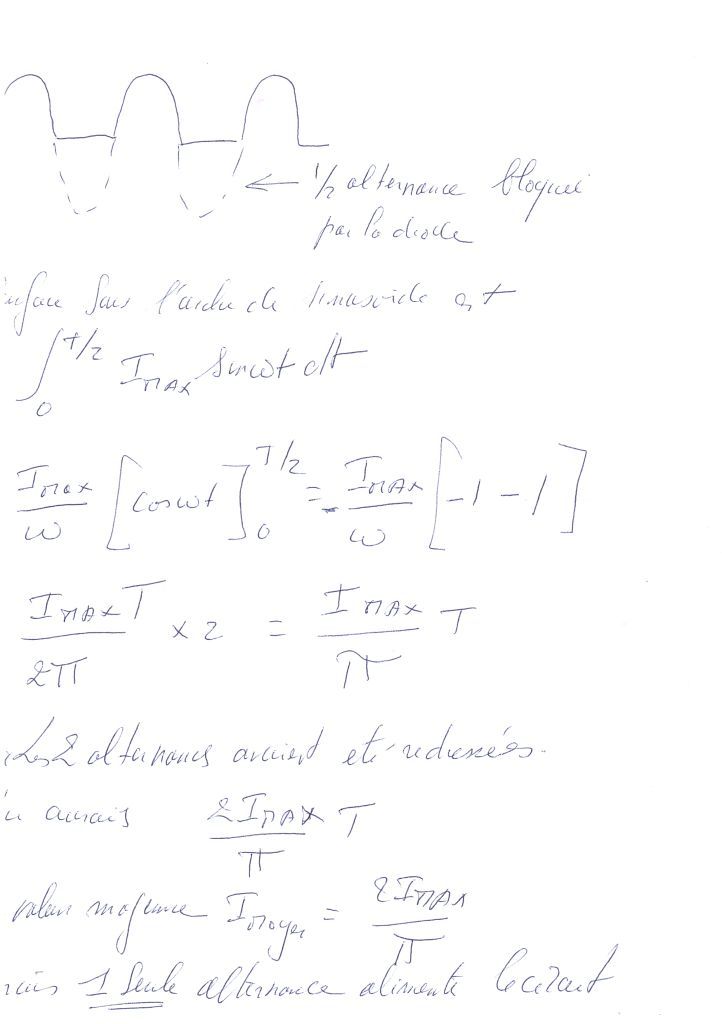 1/2 alternance bloquée
par la diode
sous l'arche de sinusoïde est
∫₀^T/2 I_MAX sin ωt dt
I_max/ω [cos ωt]₀^T/2 = - I_MAX/ω [-1 - 1]
I_MAX T/2π × 2 = I_MAX/π T
Les 2 alternances avaient été redressées.
aurais 2 I_MAX/π T
valeur moyenne I_moyen = 2 I_MAX/π
1 seule alternance alimente le circuit